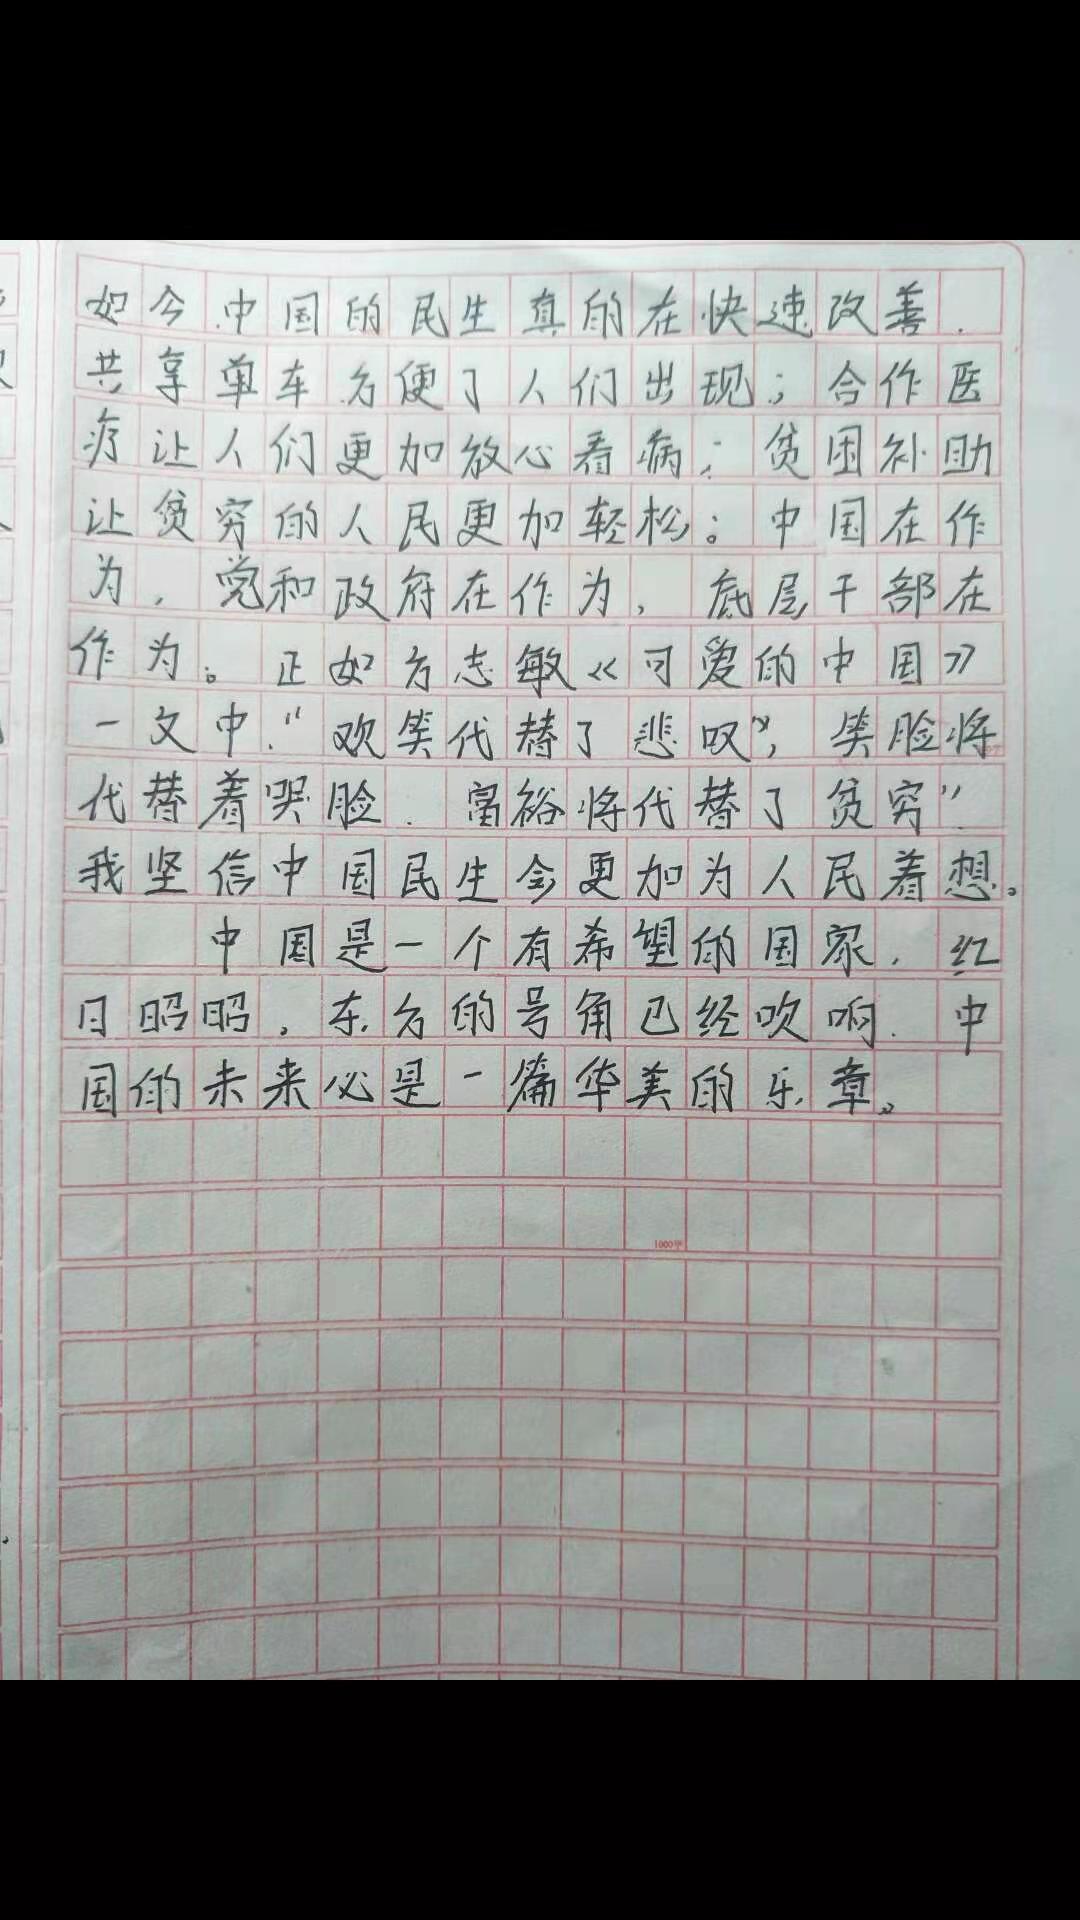 如今,中国的民生真的在快速改善.
共享单车方便了人们出现;合作医
疗让人们更加放心看病;贫困补助
让贫穷的人民更加轻松。中国在作
为,党和政府在作为,底层干部在
作为。正如方志敏《可爱的中国》
一文中:“欢笑代替了悲叹”,笑脸将
代替着哭脸.富裕将代替了贫穷”
我坚信中国民生会更加为人民着想。
中国是一个有希望的国家,红
日昭昭,东方的号角已经吹响.中
国的未来必是一篇华美的乐章。
1000字